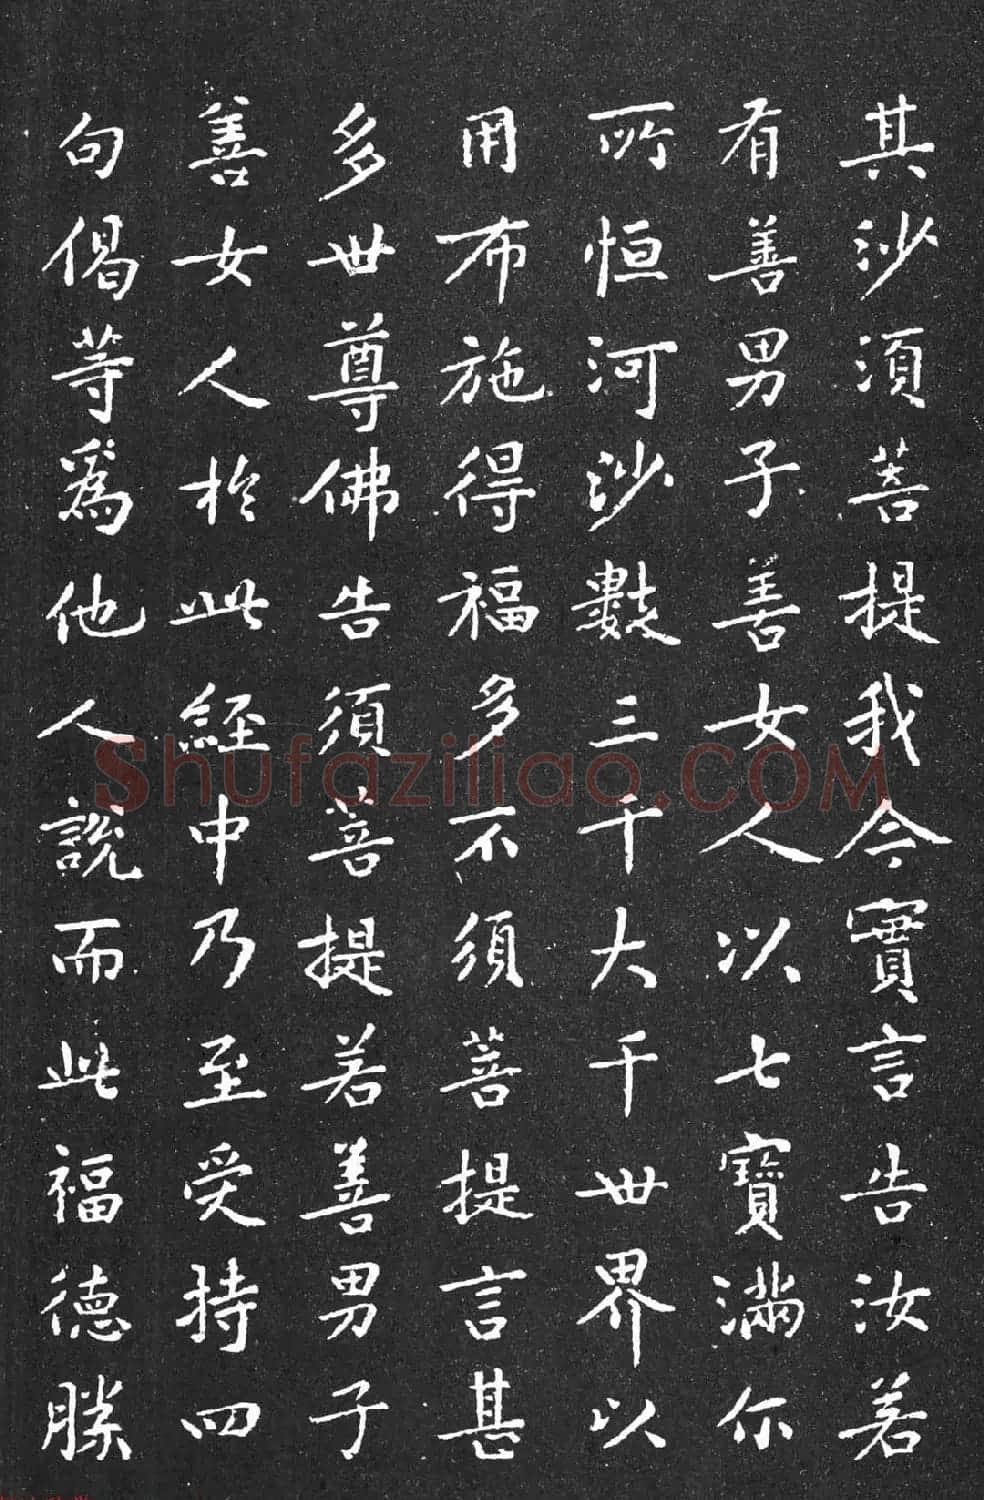 其沙須菩提我今實言告汝若
有善男子善女人以七寶滿尔
所恒河沙數三千大千世界以
用布施得福多不須菩提言甚
多世尊佛告須菩提若善男子
善女人於此經中乃至受持四
句偈等爲他人説而此福德勝
Shufaziliao.COM